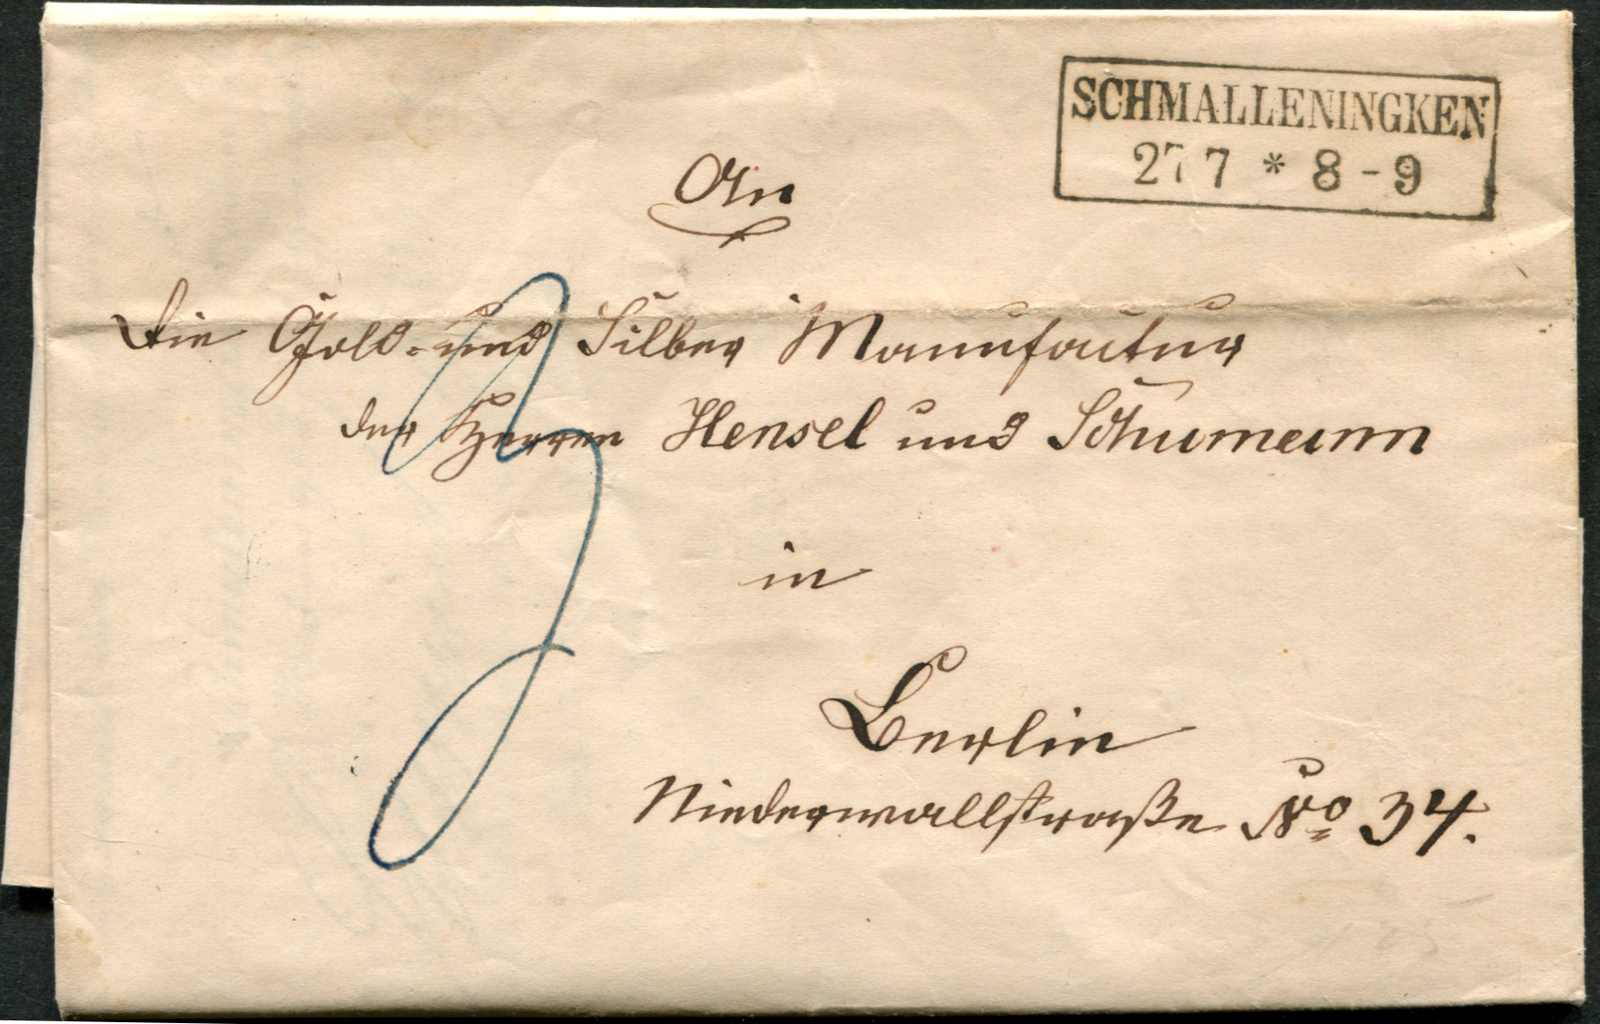 SCHMALLENINGKEN
27 7 * 8-9
An
die Gold- und Silber Manufactur
der Herren Hensel und Schumann
in
Berlin
Niederwallstraße No 34.
3